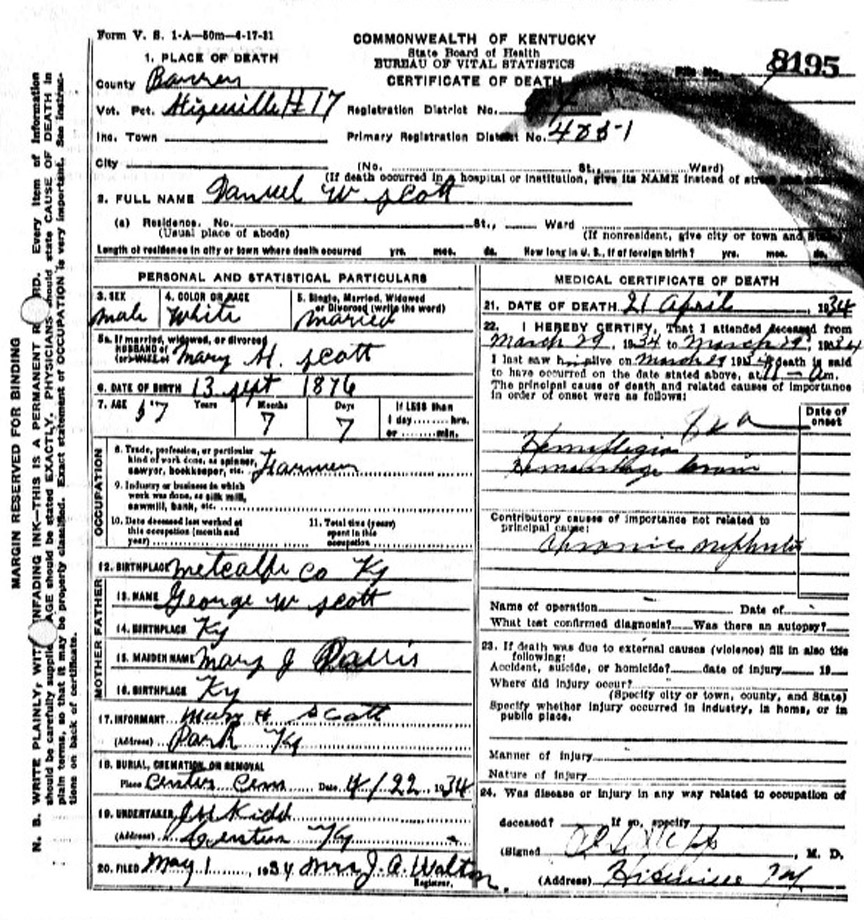 Form V. S. 1-A—50m—4-17-31
COMMONWEALTH OF KENTUCKY
State Board of Health
BUREAU OF VITAL STATISTICS
CERTIFICATE OF DEATH
File No.
8195
1. PLACE OF DEATH
County Barren
Vot. Pct. Hiseville #17
Registration District No.
Inc. Town
Primary Registration District No.
City
(No. St., Ward)
(If death occurred in a hospital or institution, give its NAME instead of street and
2. FULL NAME Samuel W Scott
(a) Residence. No. St., Ward
(Usual place of abode)
(If nonresident, give city or town and State)
Length of residence in city or town where death occurred yrs. mos. ds. How long in U. S., if of foreign birth? yrs. mos. ds.
PERSONAL AND STATISTICAL PARTICULARS
3. SEX male
4. COLOR OR RACE White
5. Single, Married, Widowed or Divorced (write the word) married
5a. If married, widowed, or divorced
HUSBAND of
(or) WIFE of Mary H. Scott
6. DATE OF BIRTH 13 Sept 1876
7. AGE 57 Years 7 Months 7 Days If LESS than 1 day hrs. or min.
OCCUPATION
8. Trade, profession, or particular
kind of work done, as spinner,
sawyer, bookkeeper, etc. Farmer
9. Industry or business in which
work was done, as silk mill,
sawmill, bank, etc.
10. Date deceased last worked at
this occupation (month and
year)
11. Total time (years)
spent in this
occupation
12. BIRTHPLACE Metcalfe Co Ky
FATHER
13. NAME George W Scott
14. BIRTHPLACE Ky
MOTHER
15. MAIDEN NAME Mary J
16. BIRTHPLACE Ky
17. INFORMANT Mary H Scott
(Address) Park Ky
18. BURIAL, CREMATION, OR REMOVAL
Place Cem Date 4/22 1934
19. UNDERTAKER Kidd
(Address) Ky
20. FILED May 1 1934 Mrs J. A. Walton
Registrar.
MEDICAL CERTIFICATE OF DEATH
21. DATE OF DEATH 21 April, 1934
22. I HEREBY CERTIFY, That I attended deceased from
March 29, 1934 to March 29, 1934
I last saw h alive on March 29 1934 death is said
to have occurred on the date stated above, at m.
The principal cause of death and related causes of importance
in order of onset were as follows:
Date of
onset
Hemiplegia
Hemorrhage brain
Contributory causes of importance not related to
principal cause:
Chronic nephritis
Name of operation Date of
What test confirmed diagnosis? Was there an autopsy?
23. If death was due to external causes (violence) fill in also the
following:
Accident, suicide, or homicide? date of injury 19
Where did injury occur?
(Specify city or town, county, and State)
Specify whether injury occurred in industry, in home, or in
public place.
Manner of injury
Nature of injury
24. Was disease or injury in any way related to occupation of
deceased? If so, specify
(Signed , M. D.
(Address) Hiseville Ky
MARGIN RESERVED FOR BINDING
N. B. WRITE PLAINLY, WITH UNFADING INK—THIS IS A PERMANENT RECORD. Every item of information
should be carefully supplied. AGE should be stated EXACTLY. PHYSICIANS should state CAUSE OF DEATH in
plain terms, so that it may be properly classified. Exact statement of OCCUPATION is very important. See instruc-
tions on back of certificate.